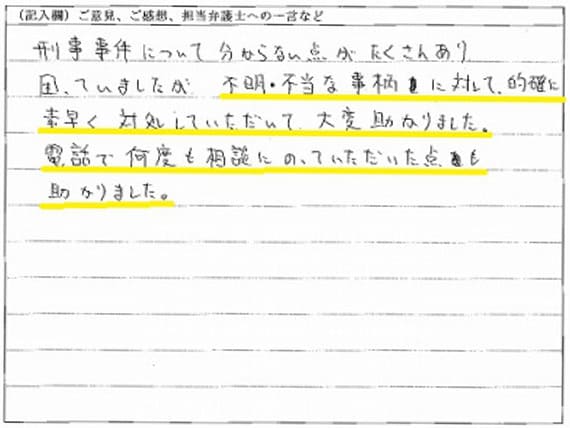 （記入欄）ご意見、ご感想、担当弁護士への一言など
刑事事件について分からない点がたくさんあり
困っていましたが 不明・不当な事柄に対して、的確に
素早く対処していただいて、大変助かりました。
電話で何度も相談にのっていただいた点も
助かりました。